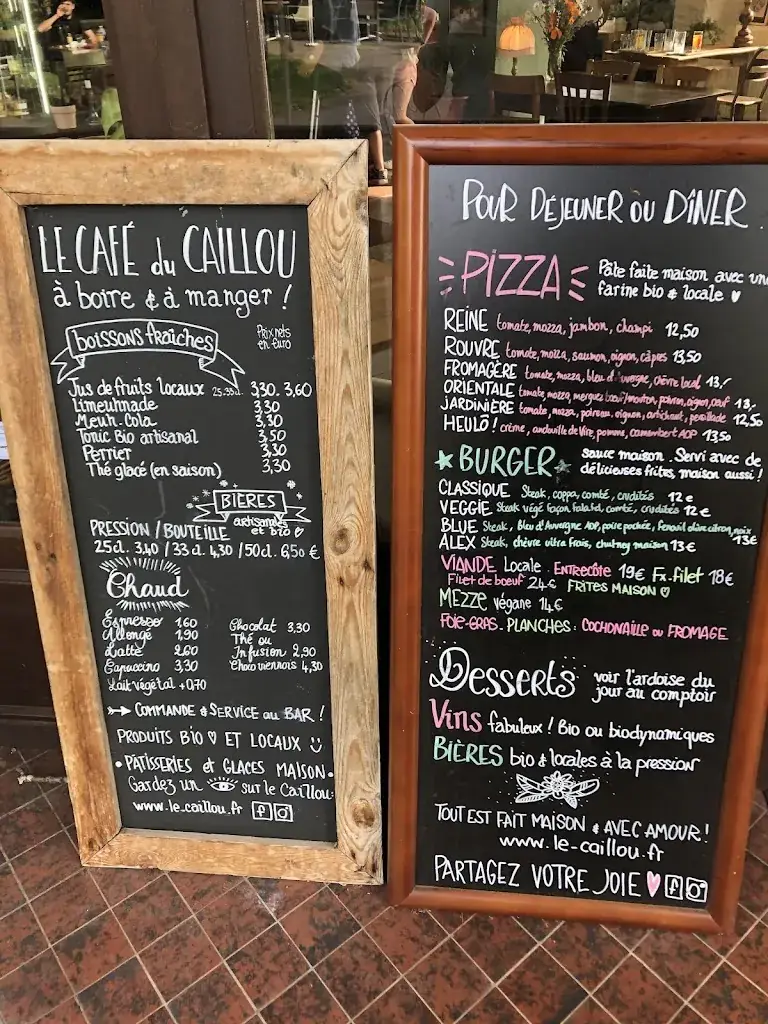 LE CAFÉ du CAILLOU
à boire & à manger !
boissons fraîches
Prix nets
en euro
Jus de fruits locaux 25.33cl. 3,30. 3,60
Limeuhnade 3,30
Meuh.Cola 3,30
Tonic Bio artisanal 3,50
Perrier 3,30
Thé glacé (en saison) 3,30
BIÈRES
artisanales
et BIO
PRESSION / BOUTEILLE
25cl. 3.40 / 33cl. 4,30 / 50cl. 6,50 €
Chaud
Espresso 1.60
Allongé 1,90
Latte 2,60
Capuccino 3,30
Lait végétal +0,70
Chocolat 3,30
Thé ou
Infusion 2,90
Choco viennois 4,30
COMMANDE & SERVICE au BAR !
PRODUITS BIO ♡ ET LOCAUX
• PÂTISSERIES et GLACES MAISON •
Gardez un sur le Caillou
www.le-caillou.fr
POUR DÉJEUNER OU DÎNER
PIZZA
Pâte faite maison avec une
farine bio & locale ♥
REINE tomate, mozza, jambon, champi 12,50
ROUVRE tomate, mozza, saumon, oignon, câpres 13,50
FROMAGÈRE tomate, mozza, bleu d'auvergne, chèvre local 13,-
ORIENTALE tomate, mozza, merguez bœuf/mouton, poivron, oignon, œuf 13,-
JARDINIÈRE tomate, mozza, poireau, oignon, artichaut, persillade 12,50
HEULÔ ! crème, andouille de Vire, pomme, camembert AOP 13,50
BURGER
sauce maison. Servi avec de
délicieuses frites, maison aussi !
CLASSIQUE Steak, coppa, comté, crudités 12€
VEGGIE Steak végé façon falafel, comté, crudités 12€
BLUE Steak, Bleu d'Auvergne AOP, poire pochée, fenouil olive citron, noix 13€
ALEX Steak, chèvre ultra frais, chutney maison 13€
VIANDE Locale. ENTRECÔTE 19€ Fx-filet 18€
Filet de bœuf 24€ FRITES MAISON ♡
MEZZE végane 14€
FOIE-GRAS. PLANCHES. COCHONAILLE ou FROMAGE
Desserts voir l'ardoise du
jour au comptoir
Vins fabuleux ! Bio ou biodynamiques
BIÈRES bio & locales à la pression
TOUT EST FAIT MAISON & AVEC AMOUR !
www.le-caillou.fr
PARTAGEZ VOTRE JOIE